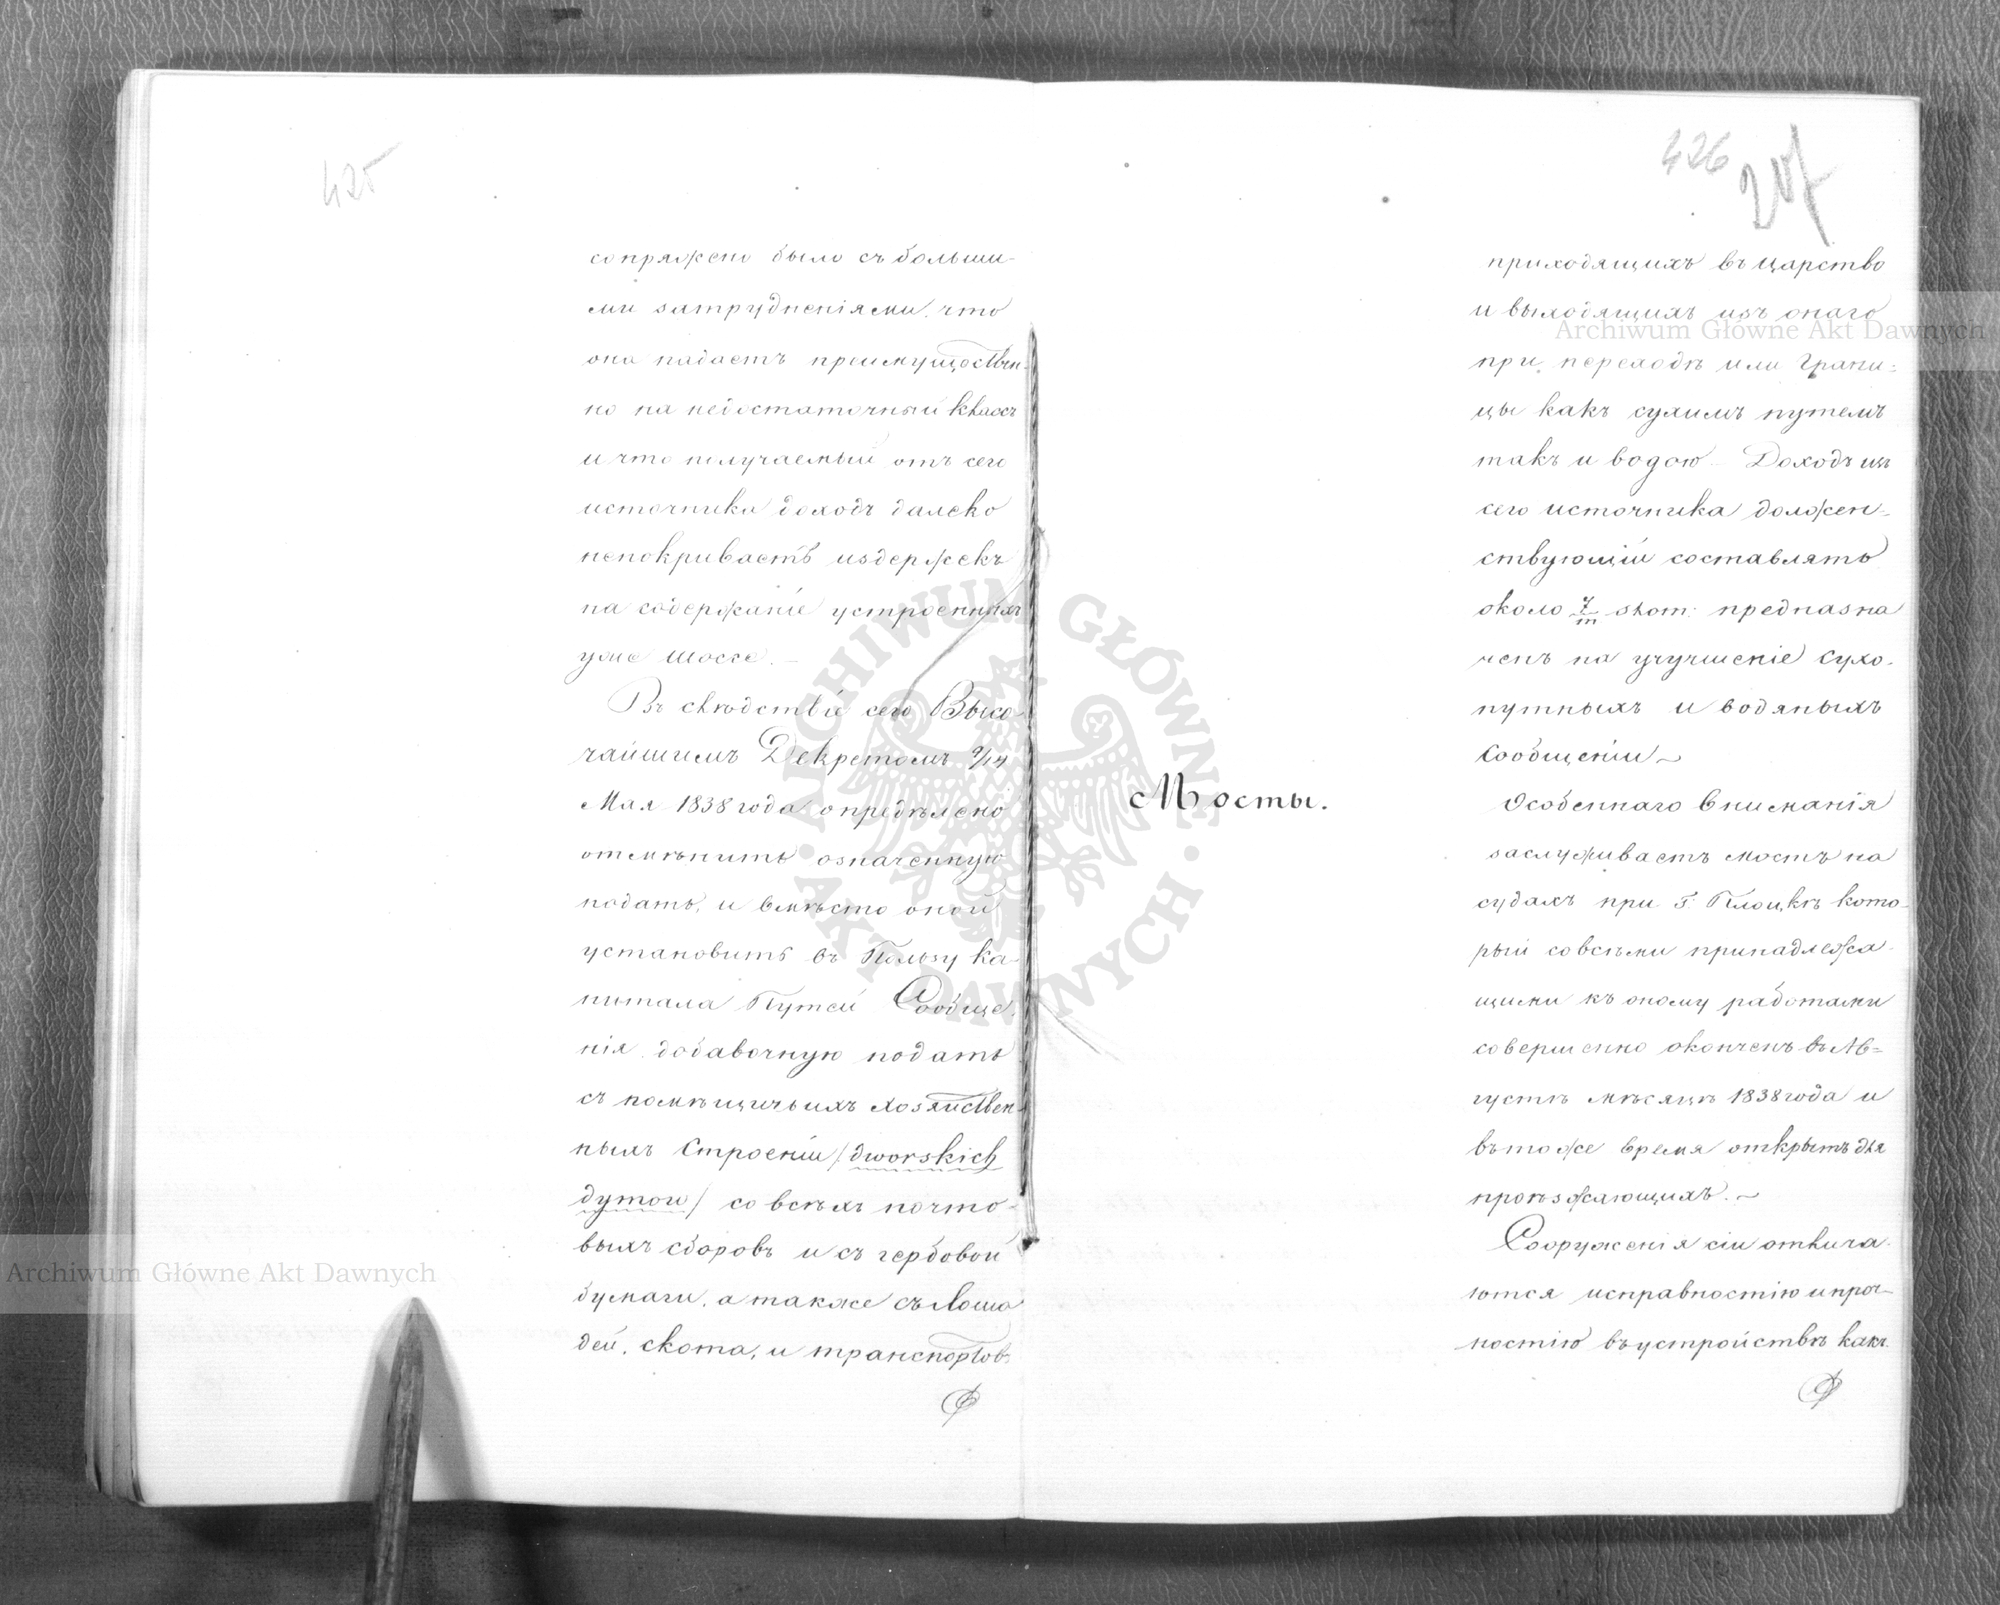 425
сопряжено было съ больши-
ми затрудненіями, что
она падаетъ преимуществен-
но на недостаточный классъ
и что получаемый отъ сего
источника доходъ далеко
непокриваетъ издержекъ
на содержаніе устроенныхъ
уже шоссе. —
Въ слѣдствіе сего Высо-
чайшимъ Декретомъ 2/14
Мая 1838 года опредѣлено
отмѣнить означенную
подать, и вмѣсто оной
установить въ Пользу ка-
питала Путей Сообще-
нія добавочную подать
съ помѣщичьихъ хозяйствен-
ныхъ Строеній /dworskich
дymow/ со всѣхъ почто-
выхъ сборовъ и съ гербовой
бумаги, а также съ Лоша
дей, скота, и транспортовъ
426
207
приходящихъ въ Царство
и выходящихъ изъ онаго
при переходѣ или Грани-
цы какъ сухимъ путемъ
такъ и водою — Доходъ изъ
сего источника должен-
ствующій составлять
около 7/m злот: предназна
ченъ на улучшеніе Сухо-
путныхъ и водяныхъ
Сообщеній ~
Мосты.
Особеннаго вниманія
заслуживаетъ мостъ на
судахъ при Г. Плоцкѣ кото-
рый со всѣми принадлежа-
щими къ оному работами
совершенно оконченъ въ Ав-
густѣ мѣсяцѣ 1838 года и
въ тоже время открытъ для
проѣзжающихъ. ~
Сооруженія сіи отлича-
ются исправностію и проч-
ностію въ устройствѣ какъ
Archiwum Główne Akt Dawnych
Archiwum Główne Akt Dawnych
ARCHIWUM GŁÓWNE · AKT DAWNYCH ·